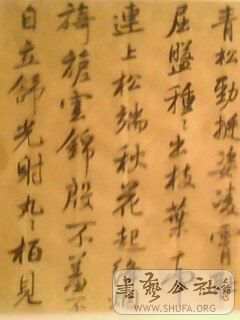 青松勁挺姿凌霄
屈盤種々出枝葉
連上松端秋花起
旖旎雲錦殷不羞不
自立舒光射丸々柏見
書藝公社
WWW.SHUFA.ORG